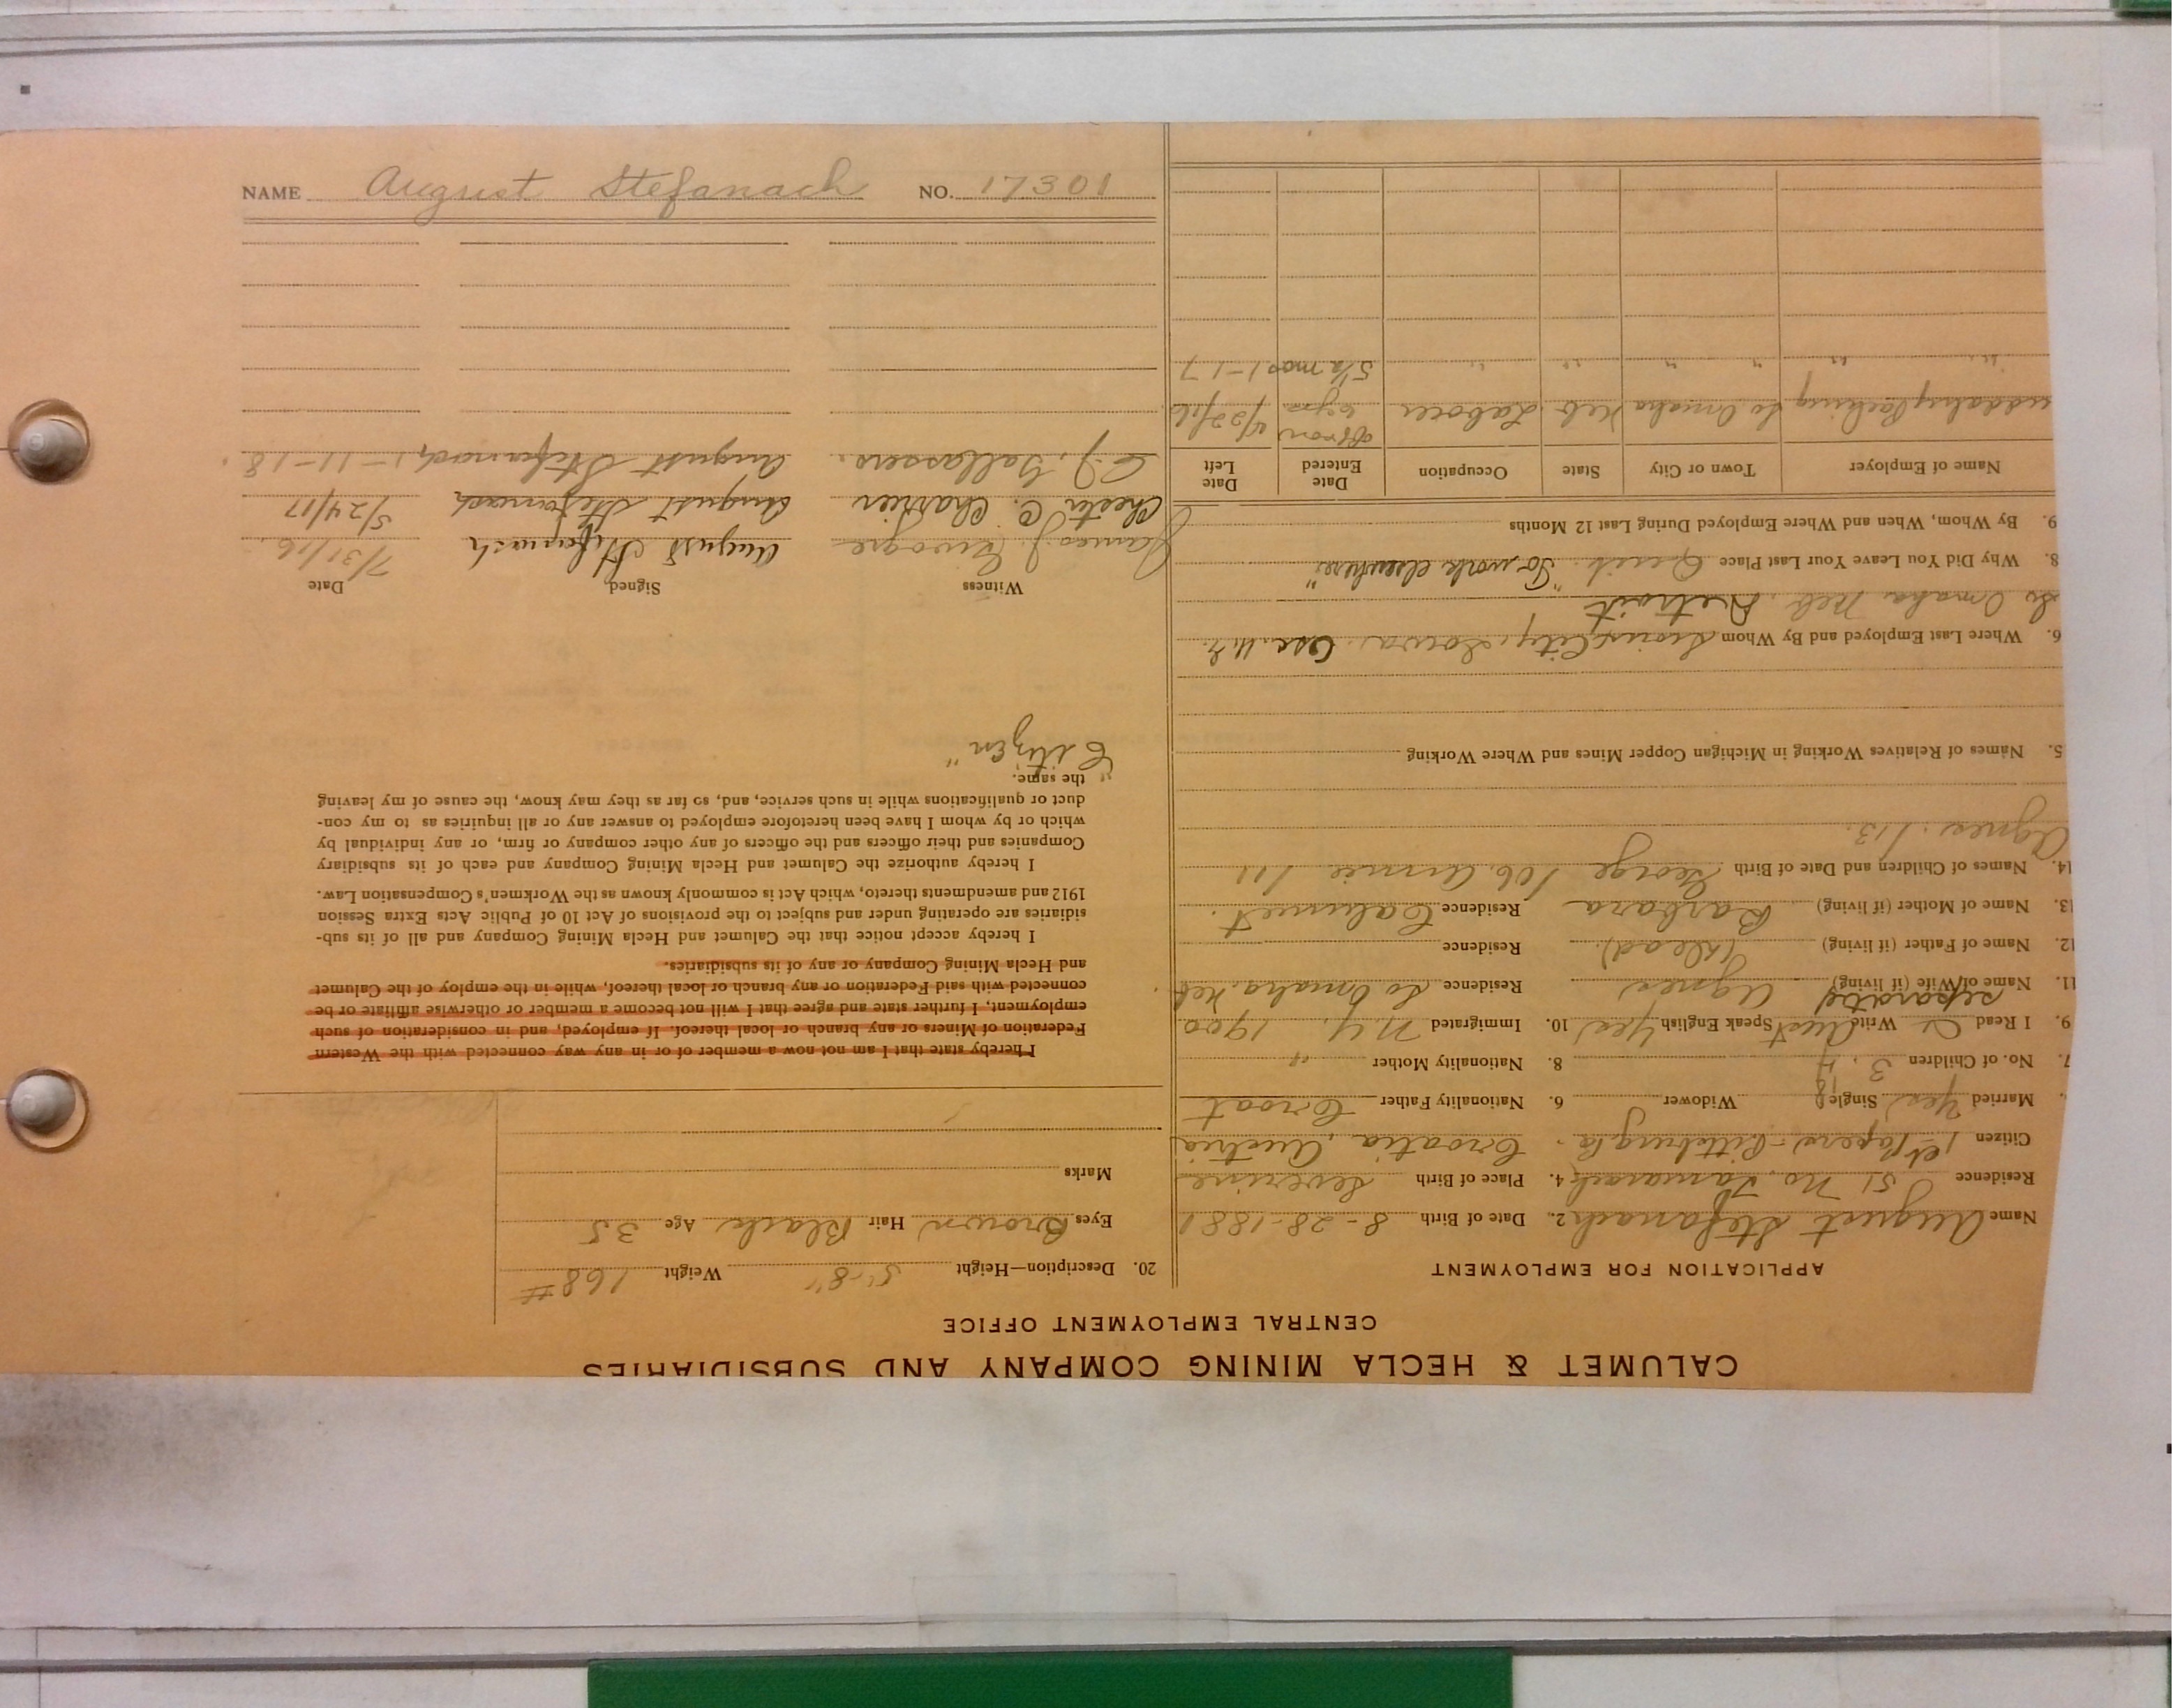 NAME August Stefanach NO. 17301
CALUMET & HECLA MINING COMPANY AND SUBSIDIARIES
CENTRAL EMPLOYMENT OFFICE
APPLICATION FOR EMPLOYMENT
Name August Stefanach 2. Date of Birth 8-28-1881
Residence 51 No. Tamarack 4. Place of Birth Severine
Citizen 1st Papers - Pittsburg Pa. Croatia, Austria
Married Yes Single Widower 6. Nationality Father Croat
7. No. of Children 3. 4 8. Nationality Mother "
9. I Read & Write Aust Speak English Yes 10. Immigrated N.Y. 1900
separated
11. Name of Wife (if living) Agnes Residence So Omaha. Neb
12. Name of Father (if living) (Dead) Residence
13. Name of Mother (if living) Barbara Residence Calumet.
14. Names of Children and Date of Birth George /06. Annie /11
Agnes. /13.
5. Names of Relatives Working in Michigan Copper Mines and Where Working
6. Where Last Employed and By Whom Sioux City, Iowa.
So Omaha Neb. Detroit
8. Why Did You Leave Your Last Place Quit. "To work elsewhere"
9. By Whom, When and Where Employed During Last 12 Months
Name of Employer Town or City State Occupation Date Entered Date Left
Packing So Omaha Neb Laborer 4/22/16
" " " " " " 5 1/2 mos 1-1-17
20. Description—Height 5'-8" Weight 168#
Eyes Brown Hair Black Age 35
Marks
I hereby state that I am not now a member of or in any way connected with the Western
Federation of Miners or any branch or local thereof. If employed, and in consideration of such
employment, I further state and agree that I will not become a member or otherwise affiliate or be
connected with said Federation or any branch or local thereof, while in the employ of the Calumet
and Hecla Mining Company or any of its subsidiaries.
I hereby accept notice that the Calumet and Hecla Mining Company and all of its sub-
sidiaries are operating under and subject to the provisions of Act 10 of Public Acts Extra Session
1912 and amendments thereto, which Act is commonly known as the Workmen's Compensation Law.
I hereby authorize the Calumet and Hecla Mining Company and each of its subsidiary
Companies and their officers and the officers of any other company or firm, or any individual by
which or by whom I have been heretofore employed to answer any or all inquiries as to my con-
duct or qualifications while in such service, and, so far as they may know, the cause of my leaving
the same.
"Citizen"
Witness Signed Date
James J. August Stefanach 7/31/16.
Chester C. Chartier August Stefanach 5/24/17
C. J. August Stefanach, 1-11-18.